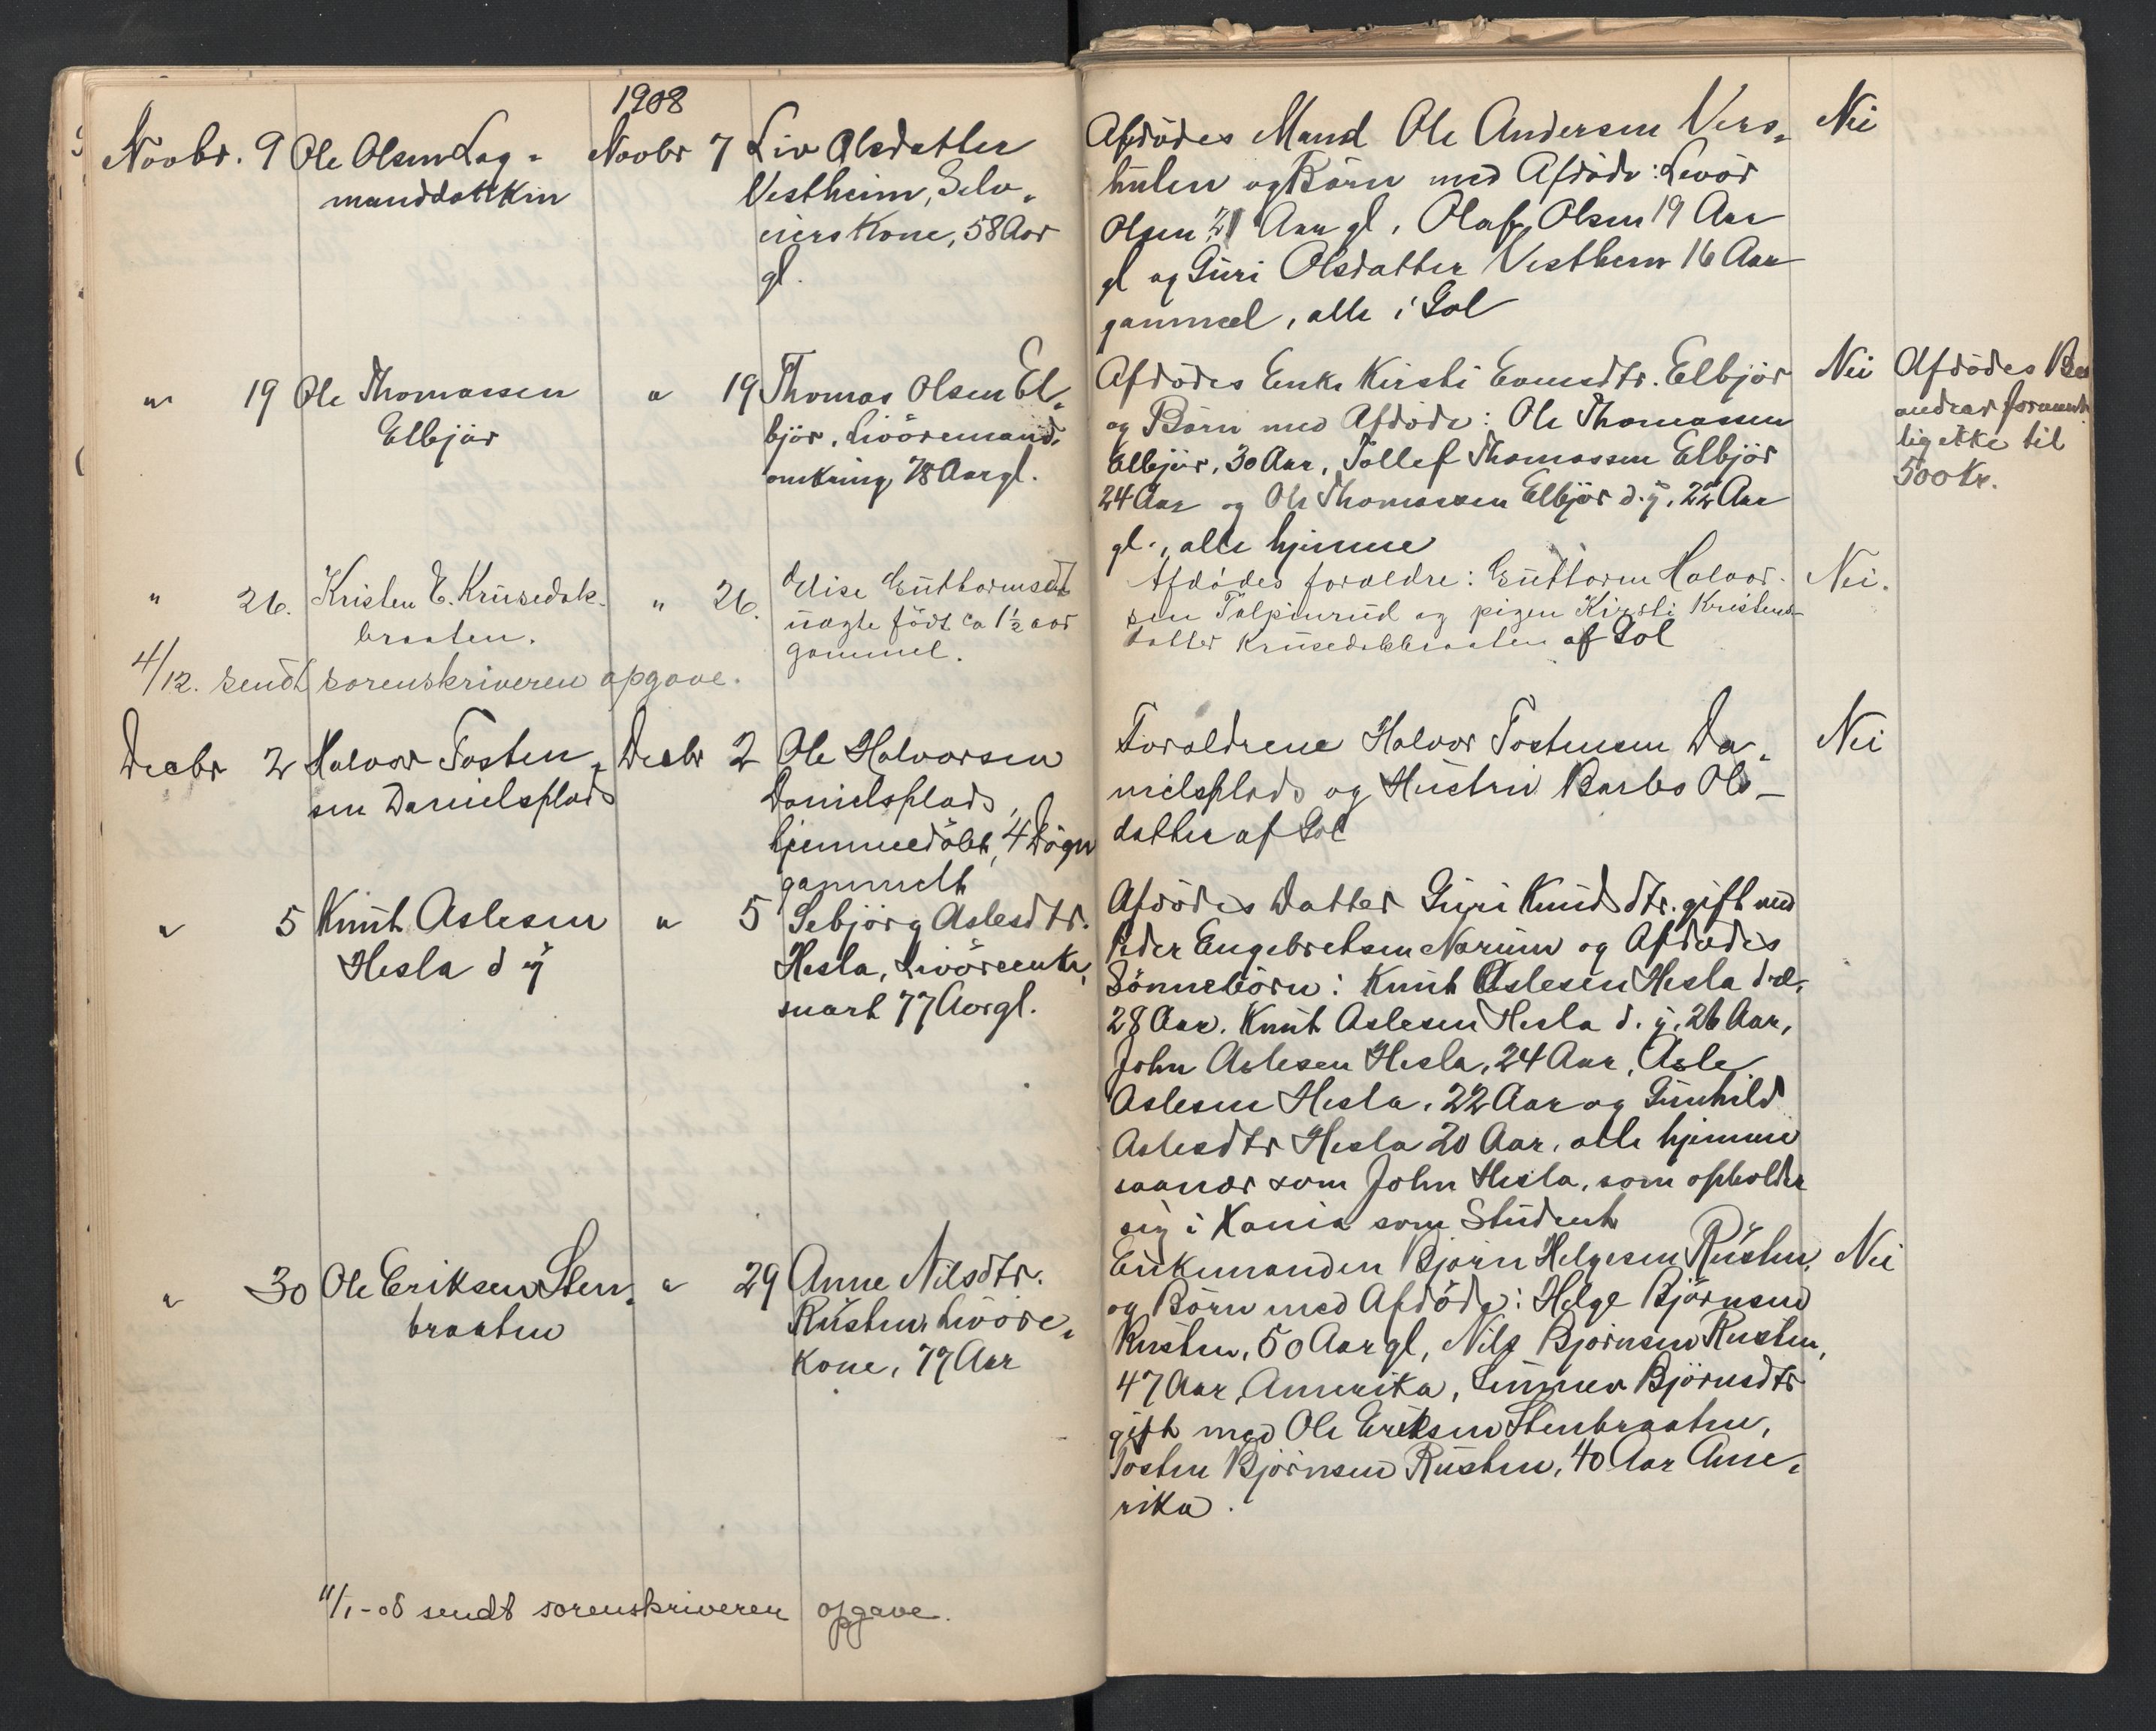 1908
Novbr. 9 Ole Olsen Lag-
manddokken
Novbr 7 Liv Olsdatter
Vestheim, Selv-
eiers Kone, 58 Aar
gl.
Afdödes Mand Ole Andersen Vers-
hulen og Börn med Afdöde: Levor
Olsen 21 Aar gl, Olaf Olsen 19 Aar
gl og Guri Olsdatter Vestheim 16 Aar
gammel, alle i Gol
Nei
" 19 Ole Thomassen
Elbjör
" 19 Thomas Olsen El-
björ, Livöremand,
omkring 78 Aar gl.
Afdödes Enke Kirsti Evensdtr. Elbjör
og Börn med Afdöde: Ole Thomassen
Elbjör, 30 Aar, Tollef Thomassen Elbjör
24 Aar og Ole Thomassen Elbjör d.y. 22 Aar
gl., alle hjemme
Nei
Afdödes Bo
andrar forment-
lig ikke til
500 Kr.
" 26. Kristen E. Krusedok-
braaten.
" 26. Elise Guttormsdt
uægte født ca 1½ aar
gammel.
Afdødes foraldre: Guttorm Halvor-
sen Tulpinrud og pigen Kirsti Kristens-
datter Krusedokbraaten af Gol
Nei.
4/12. sendt sorenskriveren opgave.
Decbr 2 Halvor Tosten-
sen Danielsplads
Decbr 2 Ole Halvorsen
Danielsplads,
hjemmedöbt, 4 Dögn
gammelt
Foraldrene Halvor Tostensen Da-
nielsplads og Hustru Barbo Ols-
datter af Gol
Nei
" 5 Knut Aslesen
Hesla d y
" 5 Sebjörg Aslesdtr.
Hesla, Livöreenke,
snart 77 Aar gl.
Afdödes Datter Guri Knudsdtr. gift med
Peder Engebretsen Narum og Afdödes
Sönnebörn: Knut Aslesen Hesla d.æ.
28 Aar. Knut Aslesen Hesla d. y. 26 Aar,
John Aslesen Hesla, 24 Aar, Asle
Aslesen Hesla, 22 Aar og Gunhild
Aslesdtr Hesla 20 Aar, alle hjemme
saanær som John Hesla, som opholder
sig i Kania som Student
" 30 Ole Eriksen Sten-
braaten
" 29 Anne Nilsdtr.
Rusten, Livöre-
kone, 77 Aar
Enkemanden Björn Helgesen Rusten,
og Börn med Afdöde: Helge Björnsen
Rusten, 50 Aar gl, Nils Björnsen Rusten,
47 Aar Amerika, Sünnev Björnsdtr
gift med Ole Eriksen Stenbraaten,
Tosten Björnsen Rusten, 40 Aar Ame-
rika.
Nei
11/1-08 sendt sorenskriveren opgave.